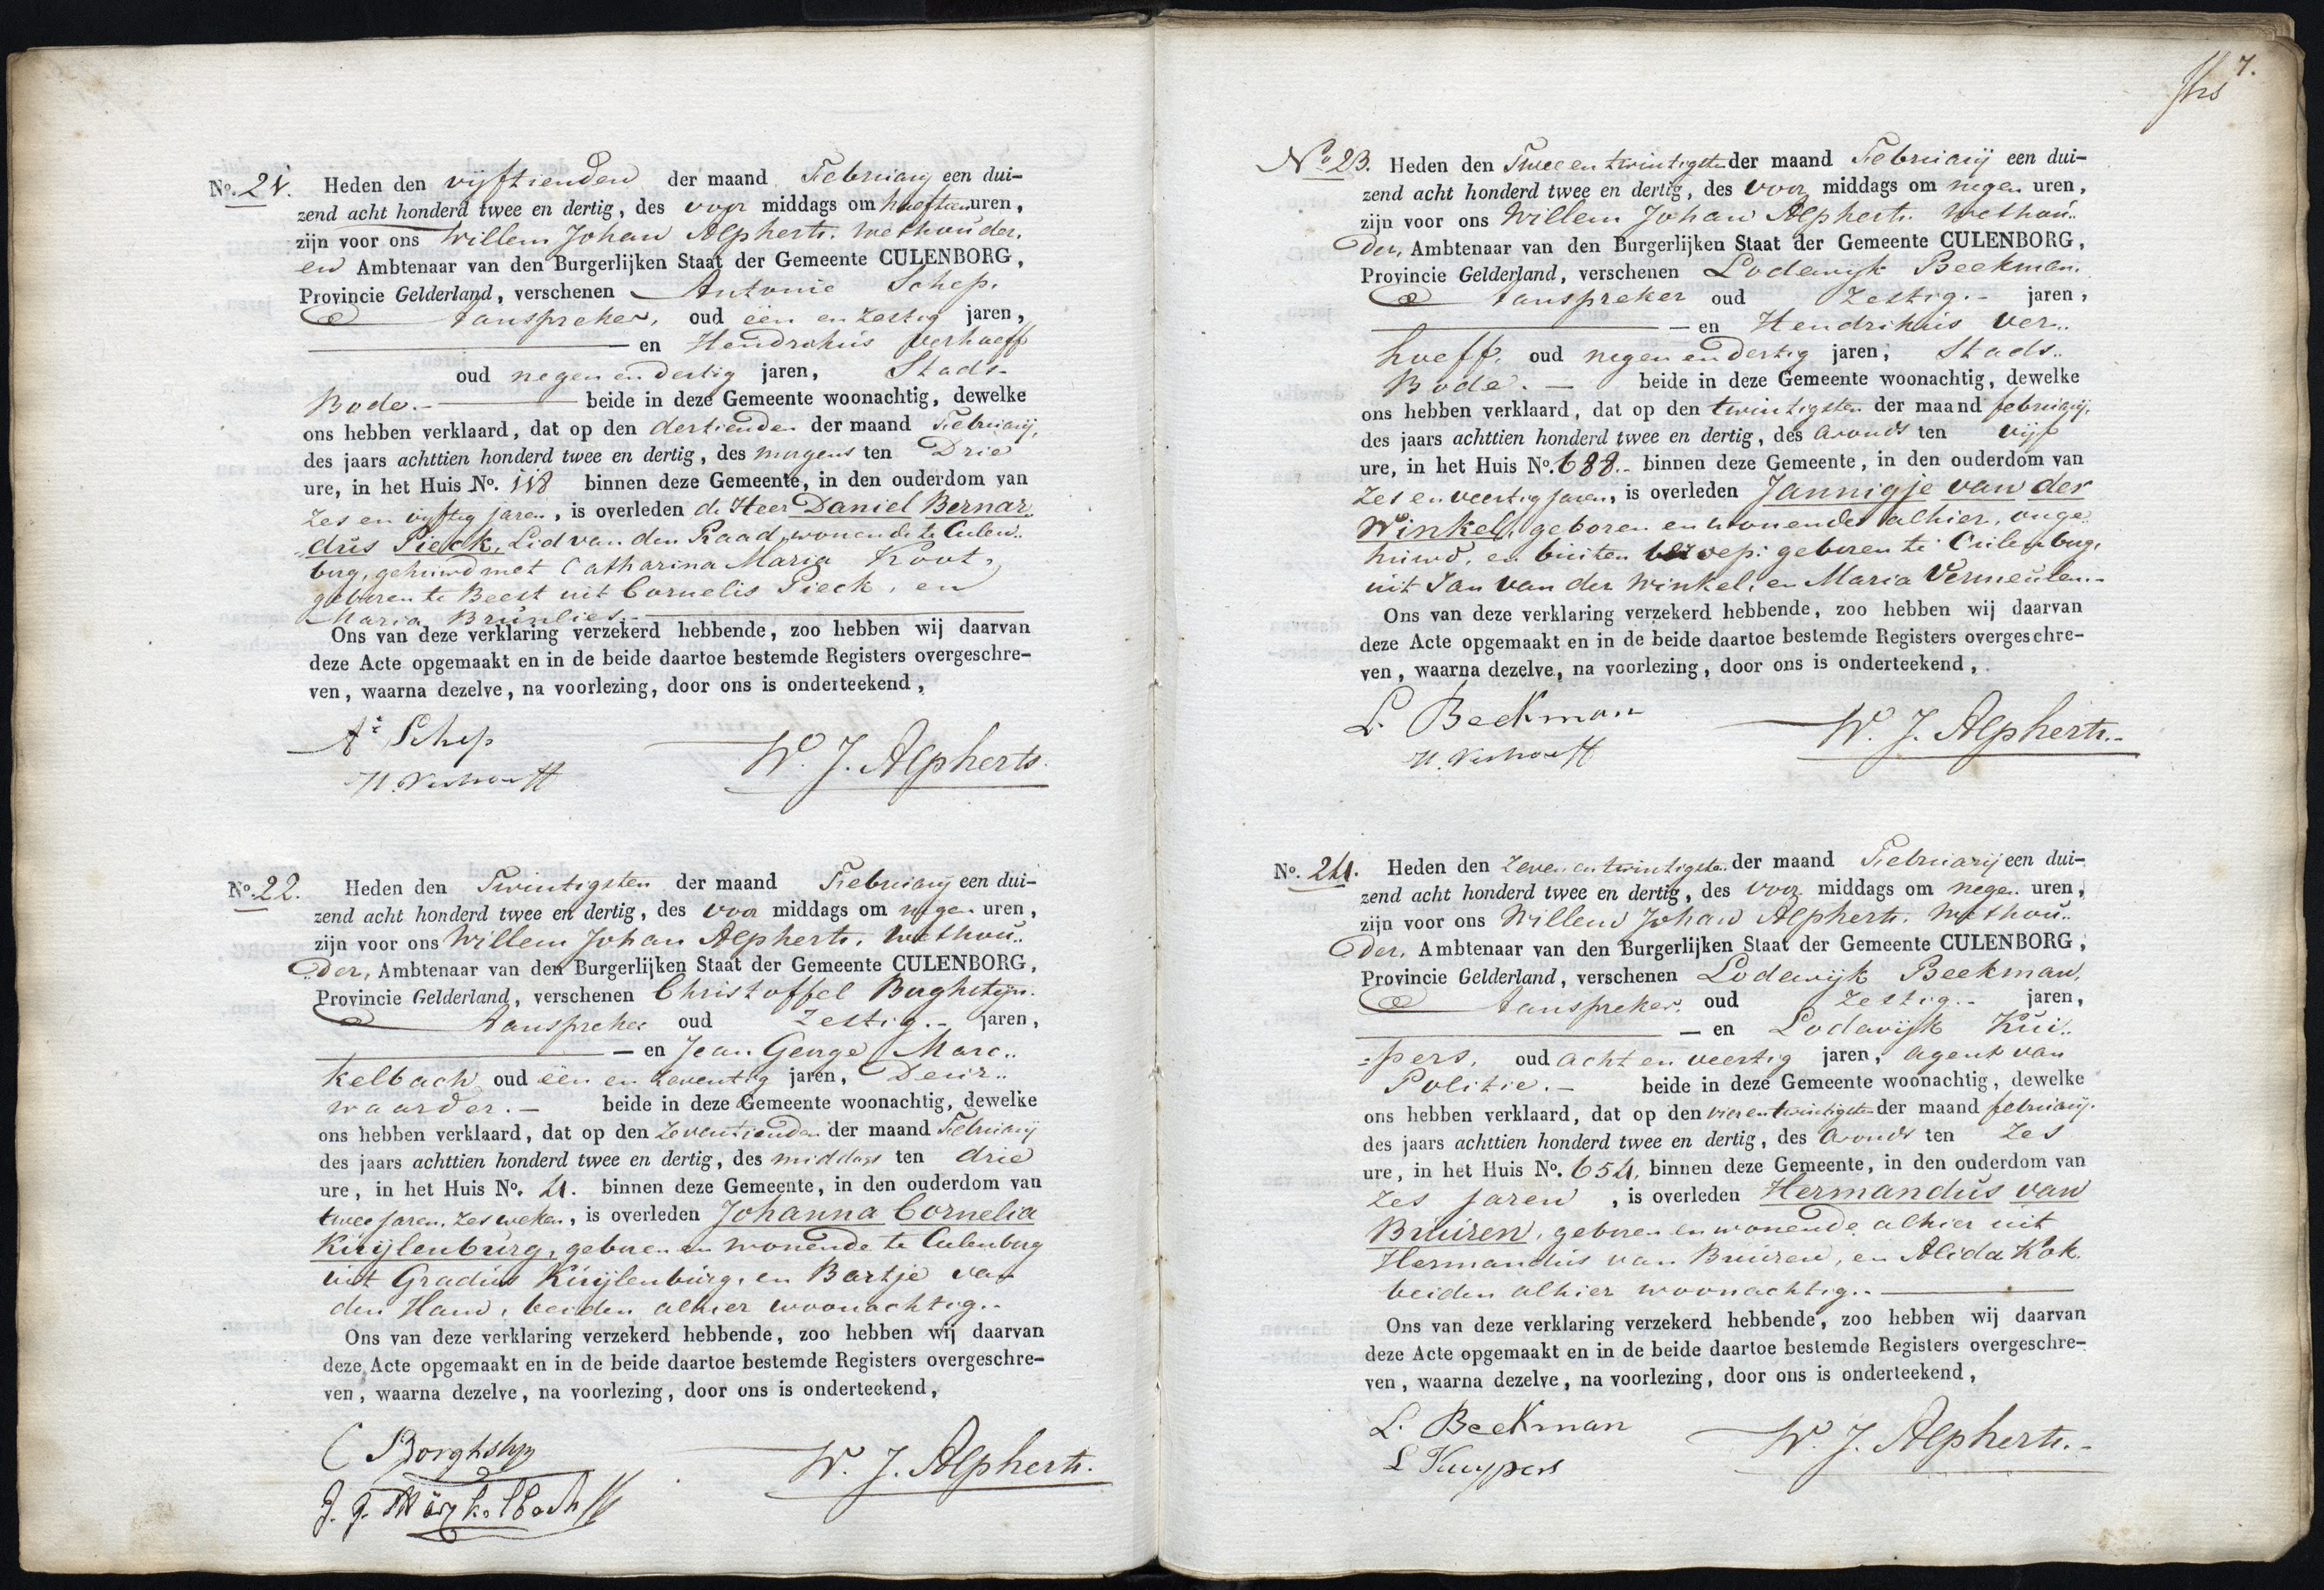 No. 21. Heden den vijftienden der maand Februarij een dui-
zend acht honderd twee en dertig, des voor middags om half tien uren,
zijn voor ons Willem Johan Alpherts. wethouder,
en Ambtenaar van den Burgerlijken Staat der Gemeente CULENBORG,
Provincie Gelderland, verschenen Antonie Schep.
Aanspreker, oud een en zestig jaren,
en Hendrikus Verhoeff
oud negen en dertig jaren, Stads-
Bode.- beide in deze Gemeente woonachtig, dewelke
ons hebben verklaard, dat op den dertienden der maand Februarij,
des jaars achttien honderd twee en dertig, des morgens ten Drie
ure, in het Huis No. 118 binnen deze Gemeente, in den ouderdom van
zes en vijftig jaren, is overleden de Heer Daniel Bernar-
dus Pieck, Lid van den Raad, wonende te Culen-
borg, gehuwd met Catharina Maria Koot,
geboren te Beest uit Cornelis Pieck, en
Maria Brunlies.-
Ons van deze verklaring verzekerd hebbende, zoo hebben wij daarvan
deze Acte opgemaakt en in de beide daartoe bestemde Registers overgeschre-
ven, waarna dezelve, na voorlezing, door ons is onderteekend,
At Schep
H. Verhoeff
W. J. Alpherts.
No. 22. Heden den Twintigsten der maand Februarij een dui-
zend acht honderd twee en dertig, des voor middags om negen uren,
zijn voor ons Willem Johan Alpherts. wethou..
der, Ambtenaar van den Burgerlijken Staat der Gemeente CULENBORG,
Provincie Gelderland, verschenen Christoffel Borghstijn.
Aanspreker oud Zestig.- jaren,
- en Jean George Marc..
kelbach oud een en zeventig jaren, Deur..
waarder.- beide in deze Gemeente woonachtig, dewelke
ons hebben verklaard, dat op den zeventienden der maand Februarij
des jaars achttien honderd twee en dertig, des middags ten drie
ure, in het Huis No. 4. binnen deze Gemeente, in den ouderdom van
twee jaren, zes weken, is overleden Johanna Cornelia
Kuijlenburg, geboren en wonende te Culenborg
uit Gradus Kuijlenburg, en Bartje van
den Ham, beiden alhier woonachtig.-
Ons van deze verklaring verzekerd hebbende, zoo hebben wij daarvan
deze Acte opgemaakt en in de beide daartoe bestemde Registers overgeschre-
ven, waarna dezelve, na voorlezing, door ons is onderteekend,
C Borghstijn
J. G. Märkelbach
W. J. Alpherts.
7.
No 23. Heden den Twee en twintigsten der maand Februarij een dui-
zend acht honderd twee en dertig, des voor middags om negen uren,
zijn voor ons Willem Johan Alpherts. wethou..
der, Ambtenaar van den Burgerlijken Staat der Gemeente CULENBORG,
Provincie Gelderland, verschenen Lodewijk Beekman.
Aanspreker oud Zestig.- jaren,
- en Hendrikus Ver..
hoeff, oud negen en dertig jaren, Stads..
Bode.- beide in deze Gemeente woonachtig, dewelke
ons hebben verklaard, dat op den twintigsten der maand februarij,
des jaars achttien honderd twee en dertig, des avonds ten vijf
ure, in het Huis No. 688.- binnen deze Gemeente, in den ouderdom van
zes en veertig jaren, is overleden Jannigje van der
Winkel, geboren en wonende alhier, onge..
huwd, en buiten beroep: geboren te Culenborg,
uit Jan van der Winkel, en Maria Vermeulen.-
Ons van deze verklaring verzekerd hebbende, zoo hebben wij daarvan
deze Acte opgemaakt en in de beide daartoe bestemde Registers overgeschre-
ven, waarna dezelve, na voorlezing, door ons is onderteekend,
L. Beekman
H. Verhoeff
W. J. Alpherts.-
No. 24. Heden den zeven en twintigsten der maand Februarij een dui-
zend acht honderd twee en dertig, des voor middags om negen uren,
zijn voor ons Willem Johan Alpherts. wethou..
der, Ambtenaar van den Burgerlijken Staat der Gemeente CULENBORG,
Provincie Gelderland, verschenen Lodewijk Beekman.
Aanspreker, oud Zestig.- jaren,
- en Lodewijk Kui..
pers, oud acht en veertig jaren, agent van
Politie.- beide in deze Gemeente woonachtig, dewelke
ons hebben verklaard, dat op den vier en twintigsten der maand februarij.
des jaars achttien honderd twee en dertig, des avonds ten zes
ure, in het Huis No. 654, binnen deze Gemeente, in den ouderdom van
zes jaren, is overleden Hermandus van
Buuren, geboren en wonende alhier uit
Hermandus van Buuren, en Alida Kok.
beiden alhier woonachtig.-
Ons van deze verklaring verzekerd hebbende, zoo hebben wij daarvan
deze Acte opgemaakt en in de beide daartoe bestemde Registers overgeschre-
ven, waarna dezelve, na voorlezing, door ons is onderteekend,
L. Beekman
L Kuypers
W. J. Alpherts.-